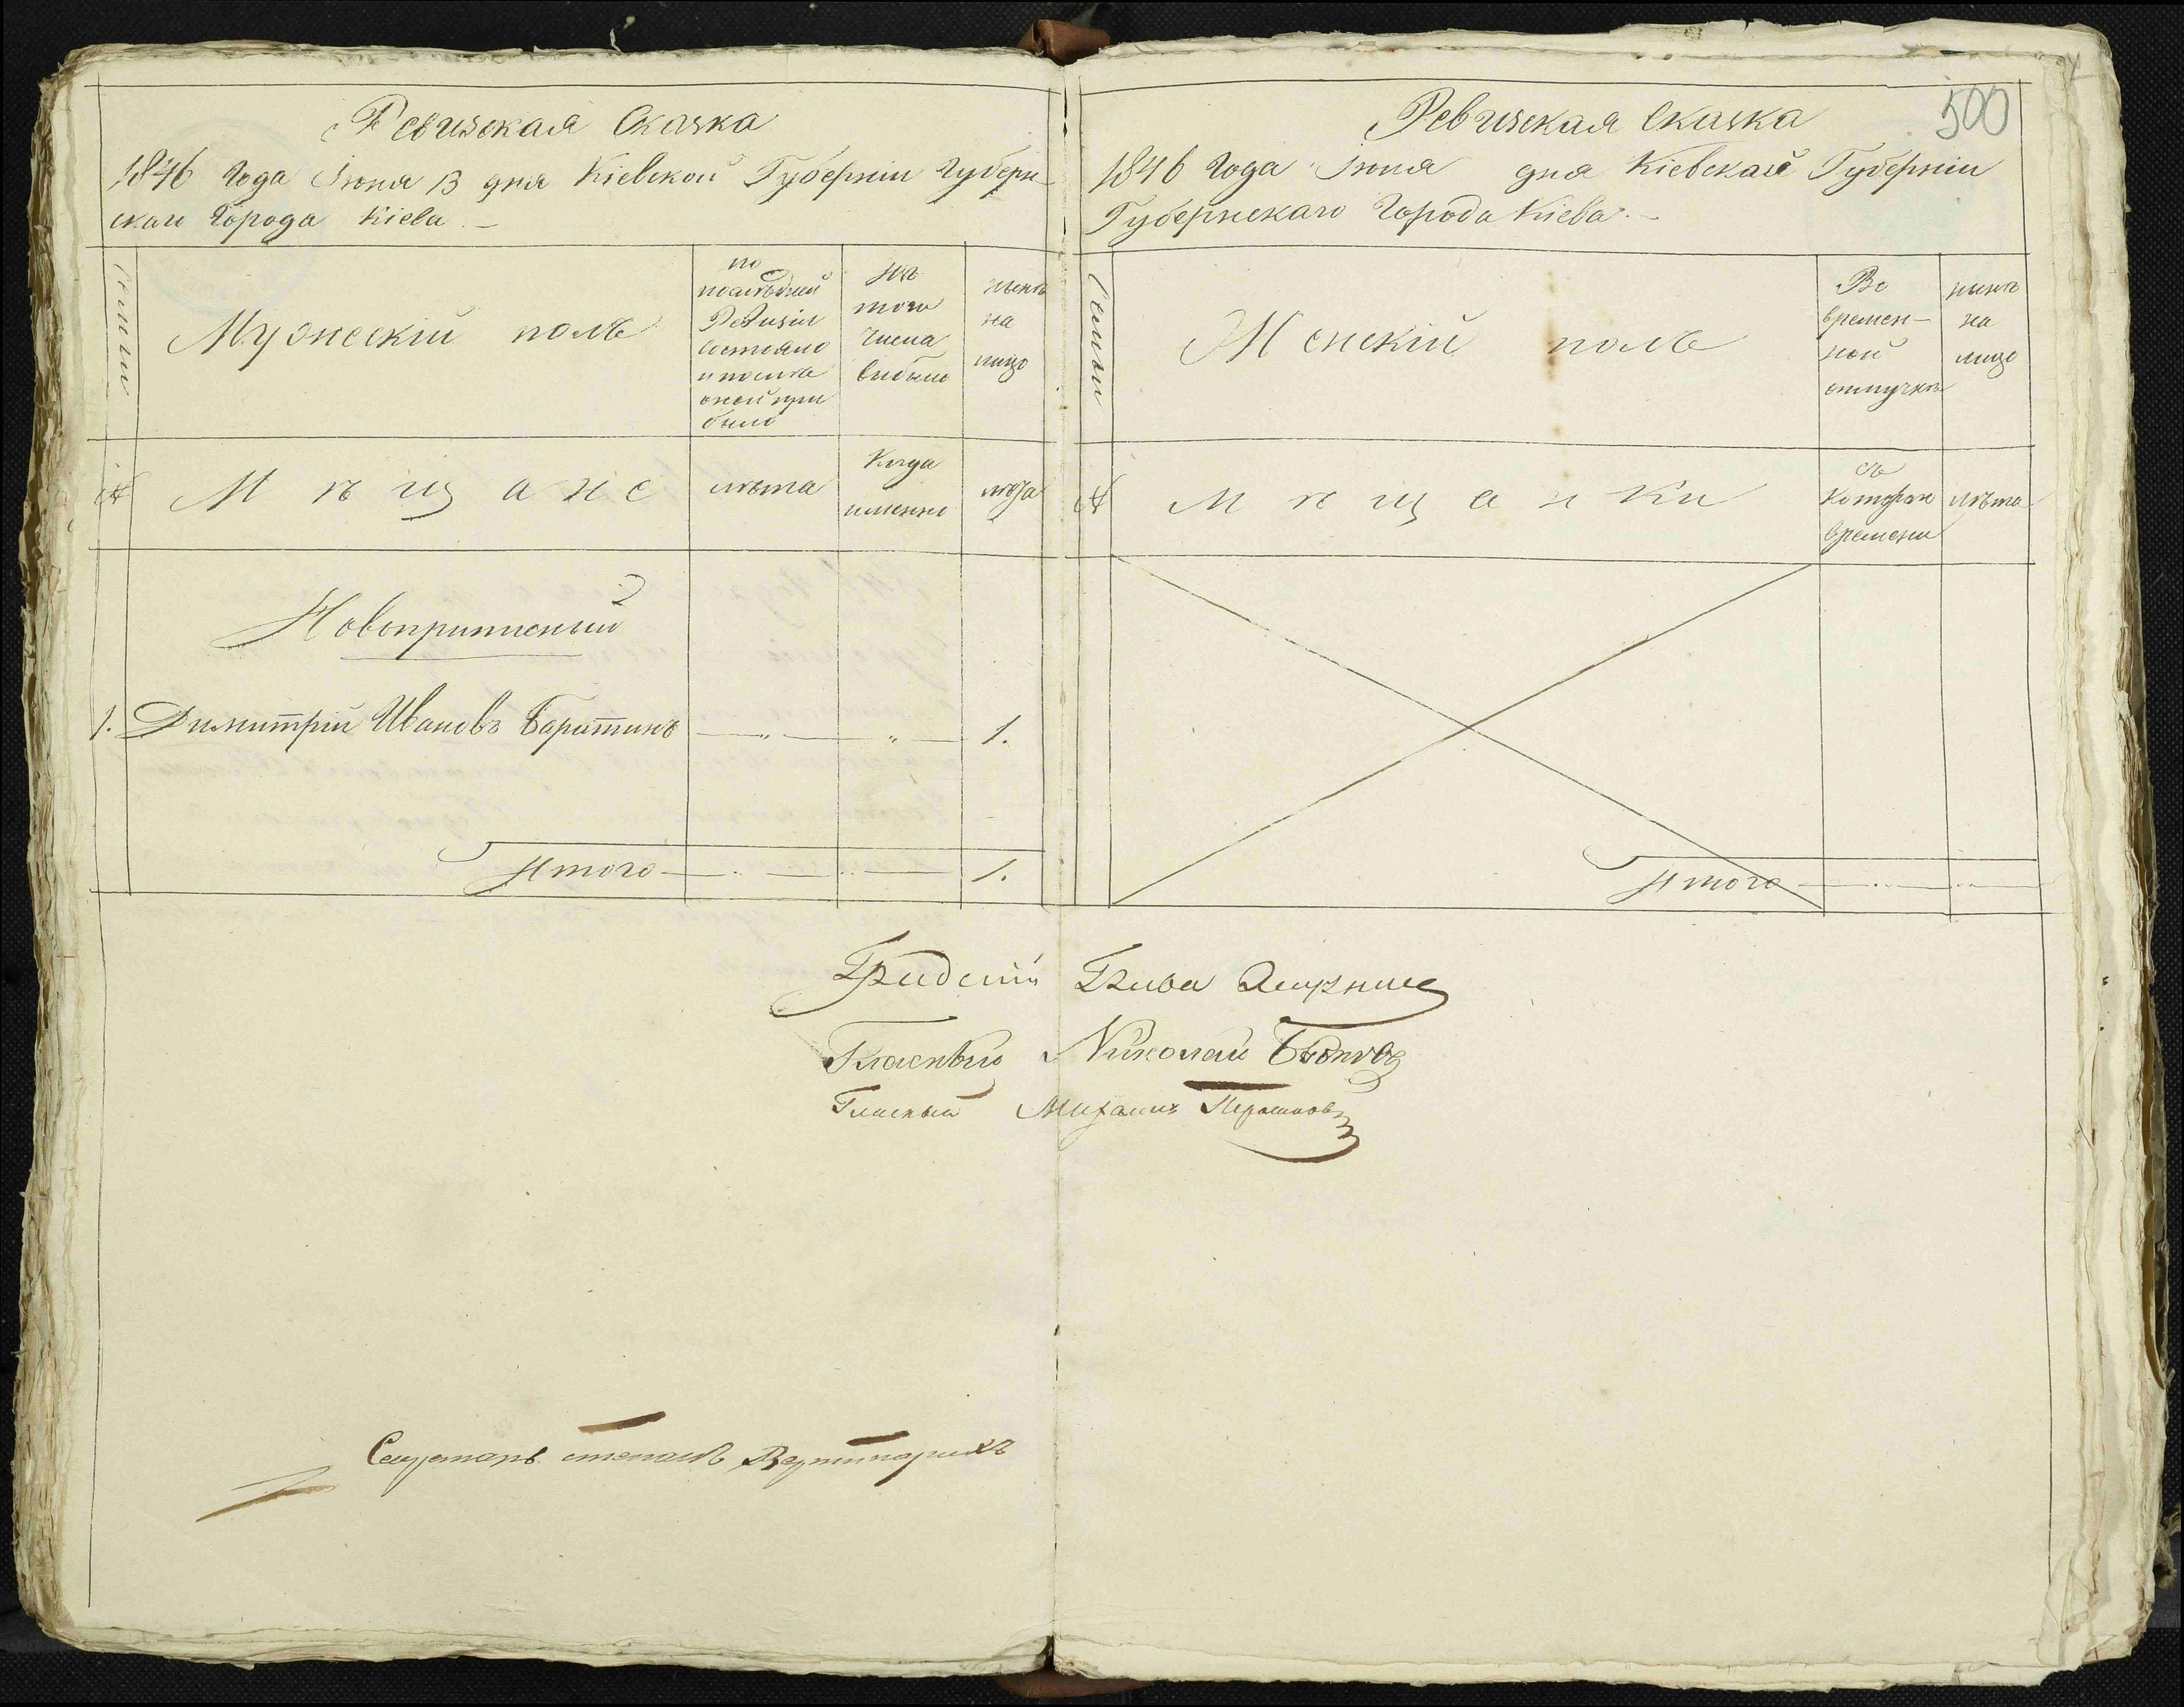 Ревизская Сказка
1846 Года Іюня 13 дня Кіевской Губерніи Губерн-
скаго Города Кіева.-
Семьи
Мужескій полъ
по
последней
Ревизіи
состояло
и после
оной при
было
Изъ
того
числа
выбыло
ныне
на
лицо
№
Мѣщане
лѣта
Когда
именно
лѣта
Новоприписный
1. Димитрій Ивановъ Баратинъ — „ — „ — 1.
Итого 1.
500
Ревизская Сказка
1846 Года Іюня дня Кіевской Губерніи
Губернскаго Города Кіева.-
Семьи
Женскій полъ
Во
времен-
ной
отлучкѣ
нынѣ
на
лицо
№
Мѣщанки
съ
котораго
времени
лѣта
Итого
Градскій Глава
Гласный Николай
Гласный Михаилъ
Секретарь